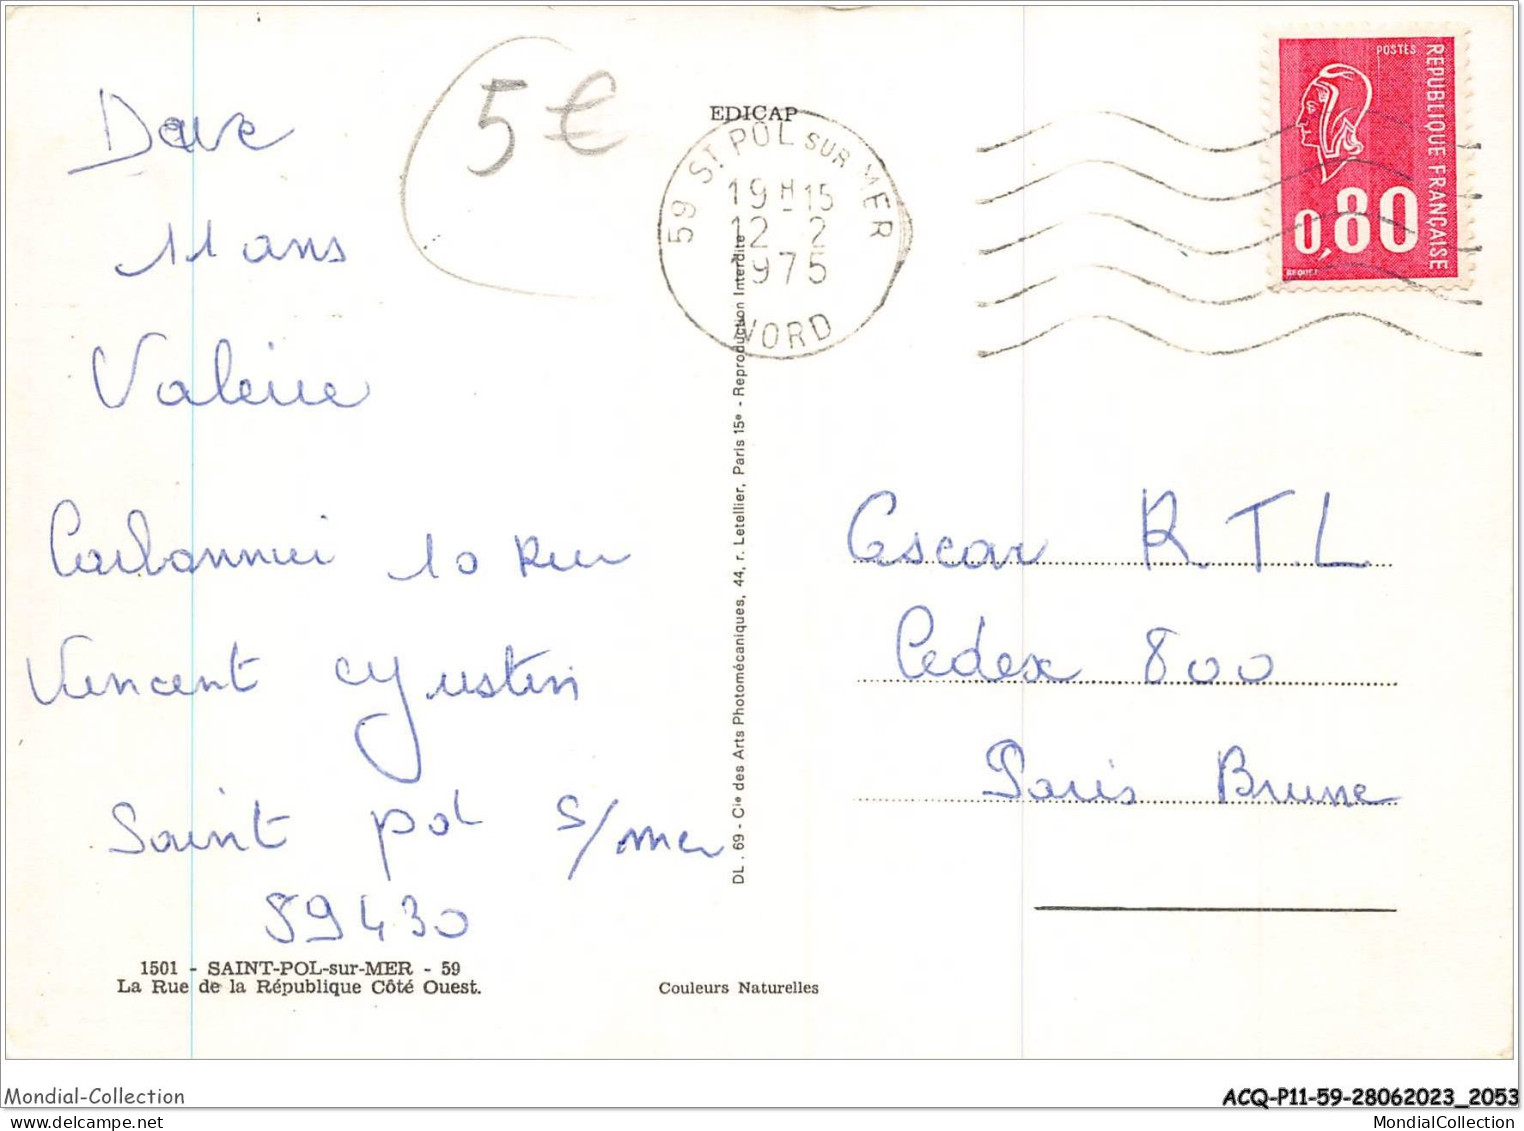 Dave
11 ans
Valérie
Carbonnier 10 Rue
Vincent cyustin
Saint pol s/mer
59430
1501 - SAINT-POL-sur-MER - 59
La Rue de la République Côté Ouest.
5€
EDICAP
59 ST POL SUR MER
19H15
12 - 2
1975
NORD
DL. 69 - Cie des Arts Photomécaniques, 44, r. Letellier, Paris 15e - Reproduction Interdite
Couleurs Naturelles
POSTES
REPUBLIQUE FRANÇAISE
0,80
BEQUET
Oscar R.T.L
Cedex 800
Paris Brune
Mondial-Collection
ACQ-P11-59-28062023_2053
Mondial-Collection.net
MondialCollection